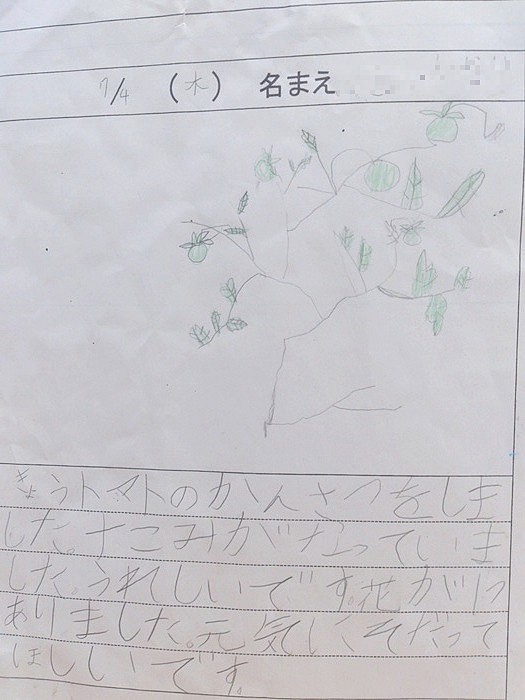 7/4 (木) 名まえ
きょうトマトのかんさつをしま
した。十こみがなっていま
した。うれしいです。花が1つ
ありました。元気にそだって
ほしいです。